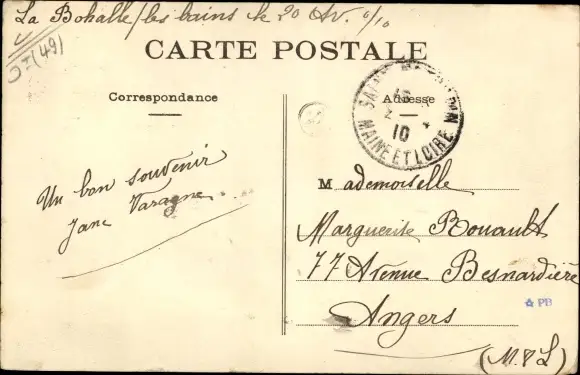 La Bohalle/les bains le 20 Av. 0/10
(49)
CARTE POSTALE
Correspondance
Adresse
MAINE ET LOIRE
10
Un bon souvenir
Jane Varagne
Mademoiselle
Marguerite Rouault
77 Avenue Besnardière
Angers
(M & L)
PB